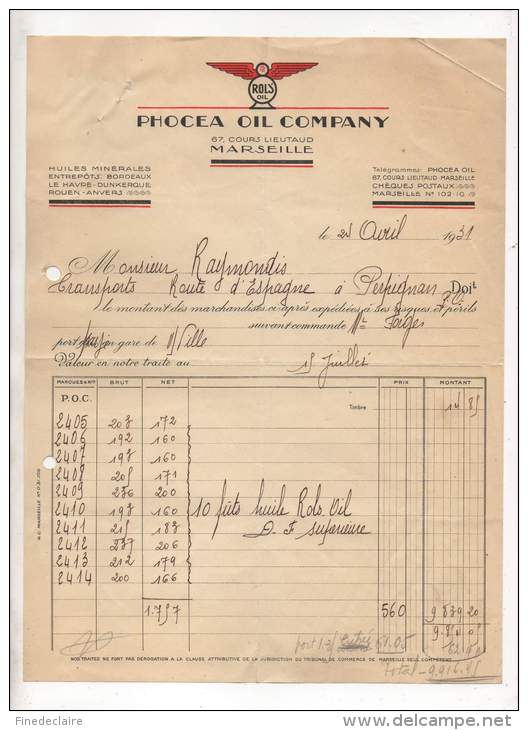 ROL'S
OIL
PHOCEA OIL COMPANY
67, COURS LIEUTAUD
MARSEILLE
HUILES MINÉRALES
ENTREPÔTS: BORDEAUX
LE HAVRE-DUNKERQUE
ROUEN-ANVERS
Télégrammes: PHOCEA OIL
67, COURS LIEUTAUD-MARSEILLE
CHÈQUES POSTAUX
MARSEILLE N° 102-10
le 24 Avril 1931
Monsieur Raymondis
Transports Route d'Espagne à Perpignan Doit
le montant des marchandises ci-après expédiées à ses risques et périls
suivant commande Mr Farges
port en gare de Ville
Valeur en notre traite au 15 Juillet
MARQUES & Nos BRUT NET PRIX MONTANT
P.O.C. Timbre 14 85
2405 172
2406 192 160
2407 160
2408 205 171
2409 236 200
2410 160
2411 215 183
2412 237 206
2413 212 179
2414 200 166
10 fûts huile Rols Oil
D.F Supérieure
1.757 560 9 839 20
9.854 05
62 40
total 9.916.45
NOS TRAITES NE FONT PAS DÉROGATION A LA CLAUSE ATTRIBUTIVE DE LA JURIDICTION DU TRIBUNAL DE COMMERCE DE MARSEILLE SEUL COMPÉTENT
Finedeclaire
delcampe.net